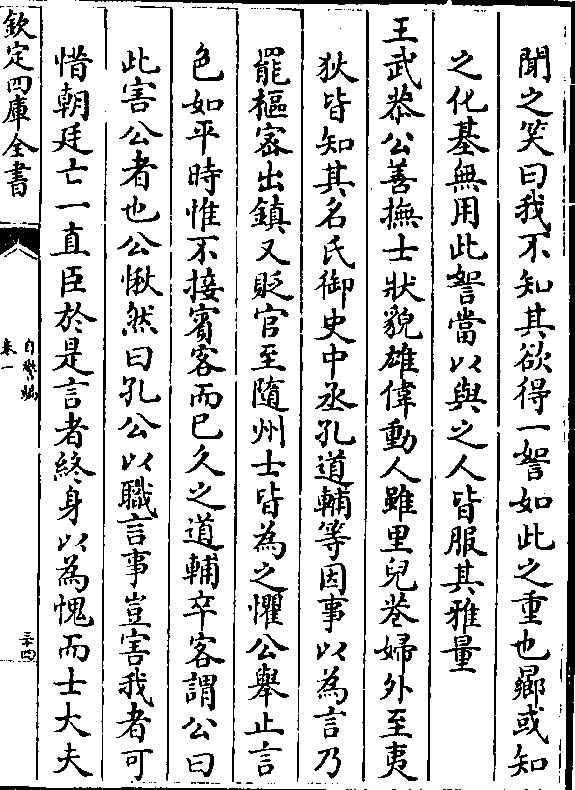 聞之笑曰我不知其欲得一詧如此之重也鄙或知
之化基無用此詧當以與之人皆服其雅量
王武恭公善撫士狀貌雄偉動人雖里兒巷婦外至夷
狄皆知其名氏御史中丞孔道輔等因事以為言乃
罷樞密出鎮又貶官至隨州士皆為之懼公舉止言
色如平時惟不接賓客而已久之道輔卒客謂公曰
此害公者也公愀然曰孔公以職言事豈害我者可
惜朝廷亡一直臣於是言者終身以為愧而士大夫
欽定四庫全書
自警編
卷一
三十四